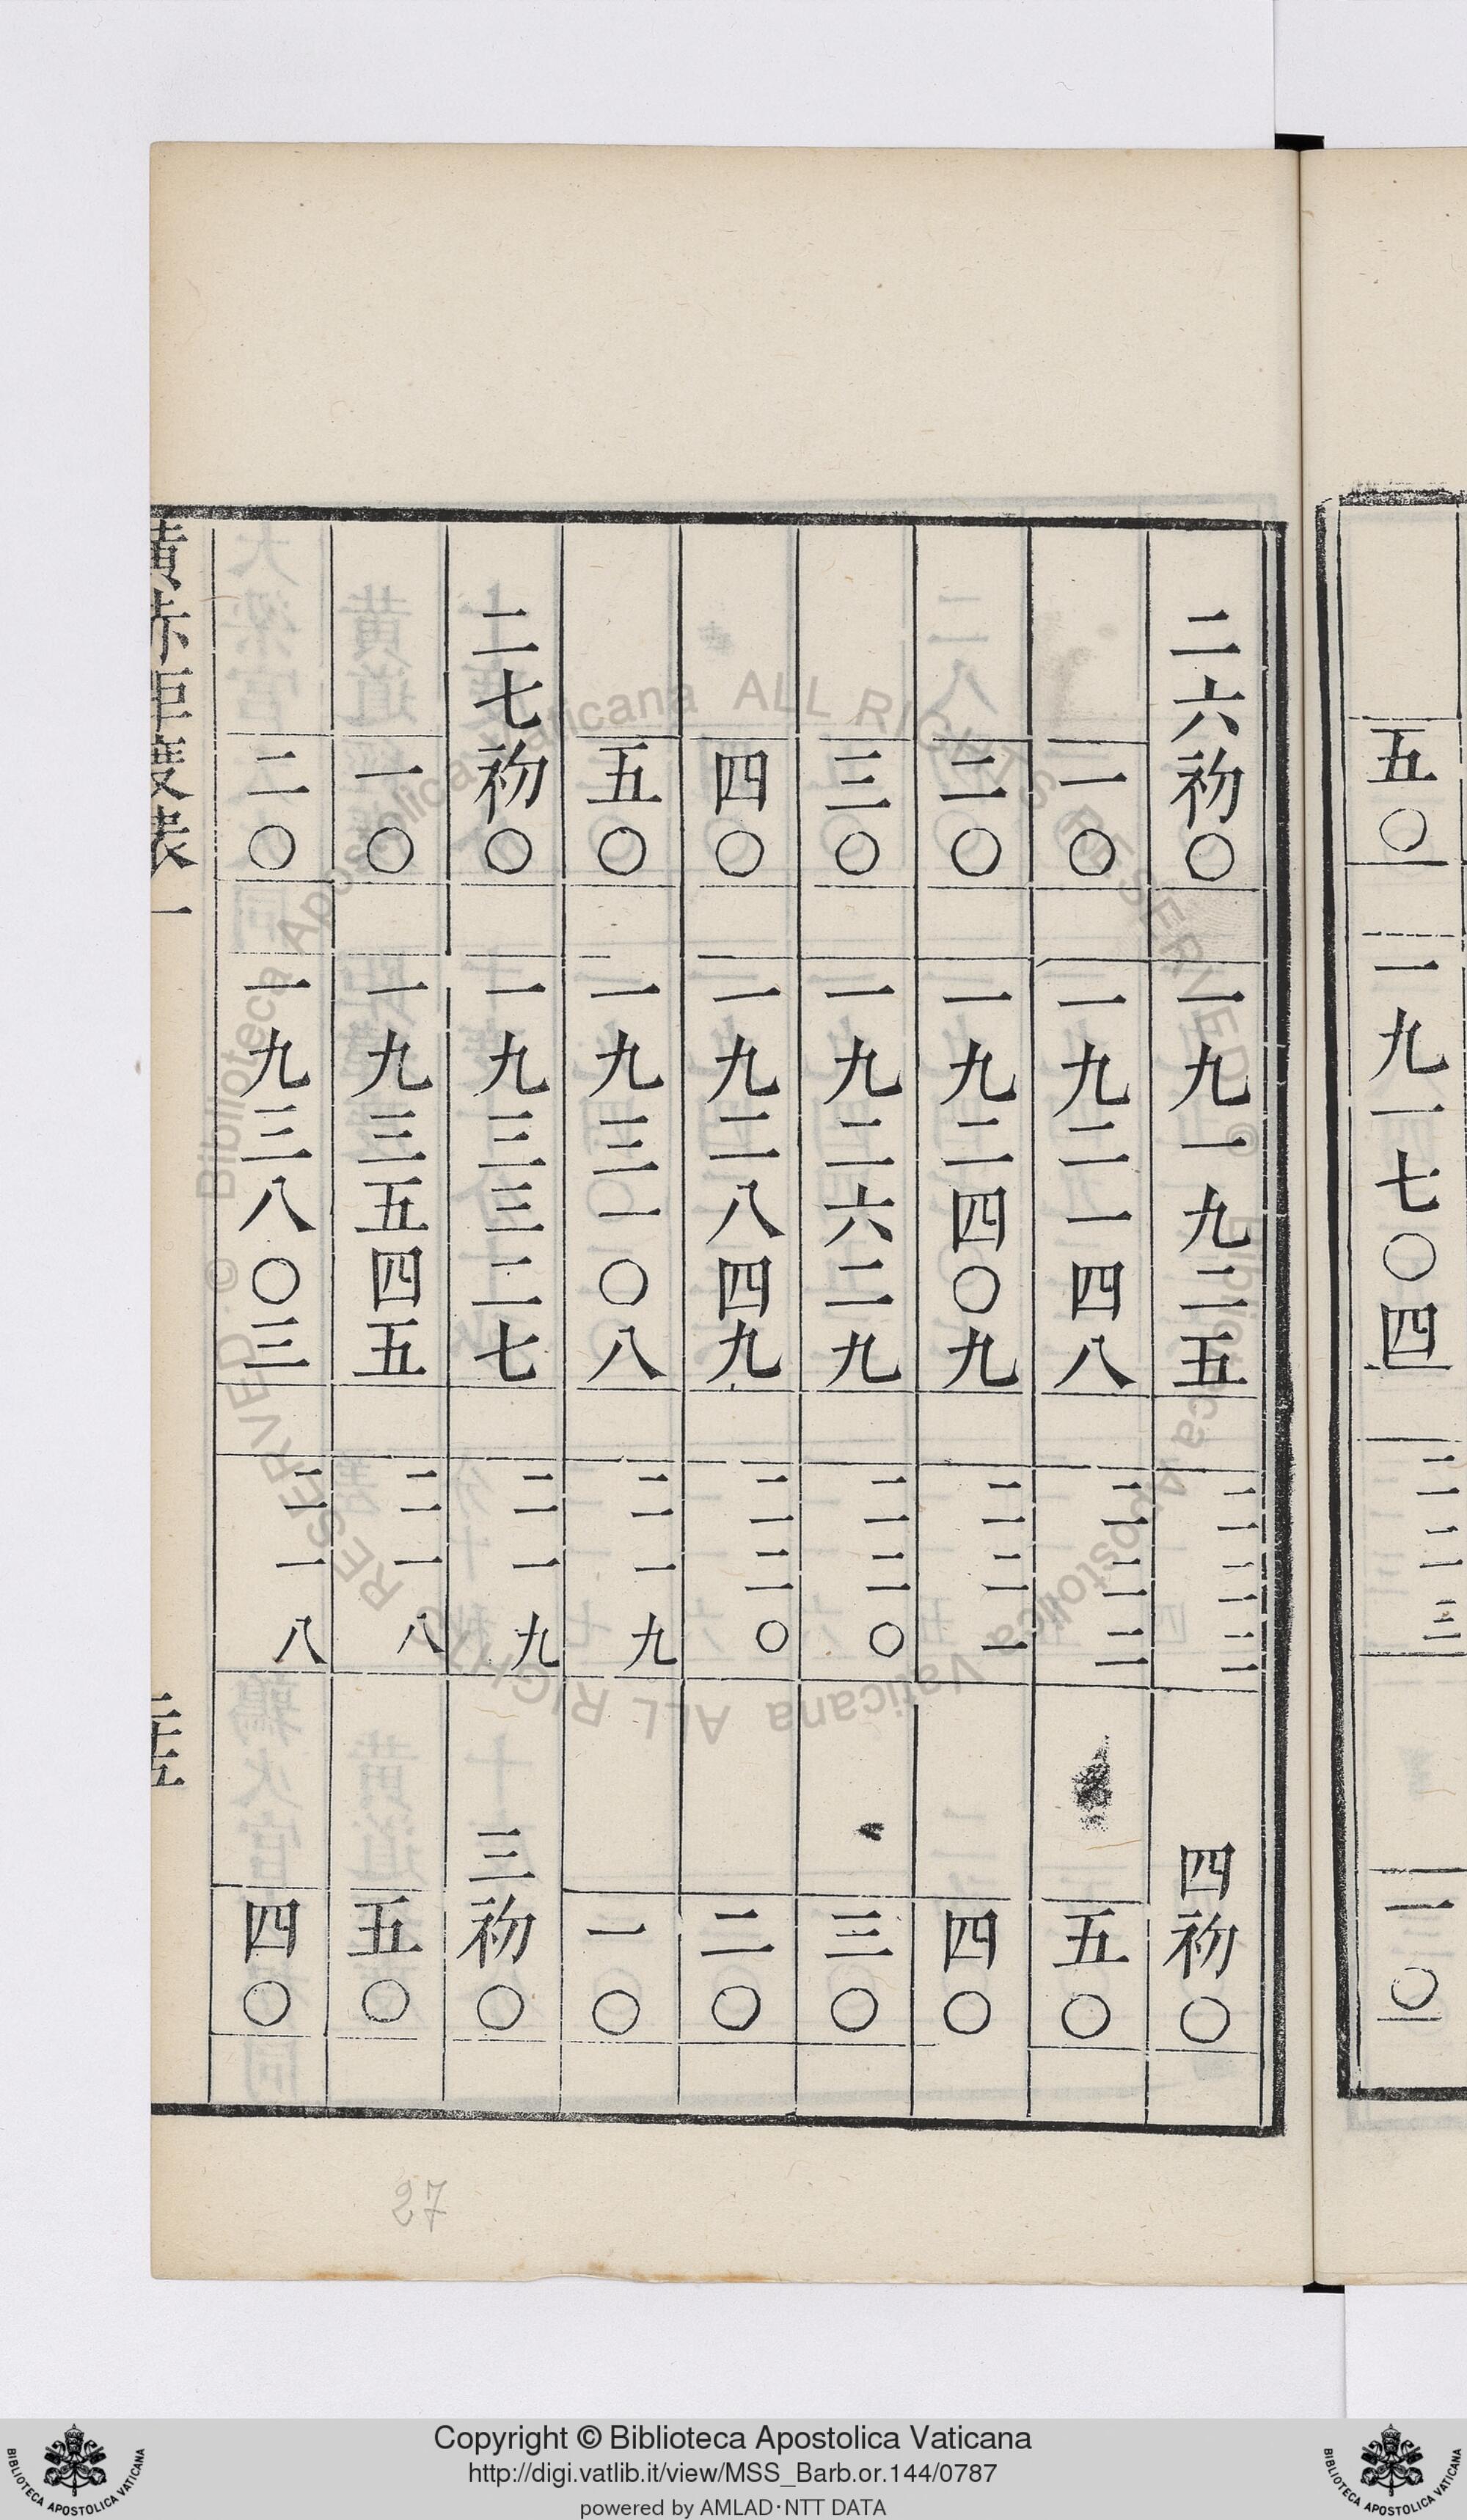 五〇 一九一七〇四 二二三 一〇
二六初〇 一九一九二五 二二二 四初〇
一〇 一九二一四八 二二二 五〇
二〇 一九二四〇九 二二一 四〇
三〇 一九二六二九 二二〇 三〇
四〇 一九二八四九 二二〇 二〇
五〇 一九三一〇八 二一九 一〇
二七初〇 一九三三二七 二一九 三初〇
一〇 一九三五四五 二一八 五〇
二〇 一九三八〇三 二一八 四〇
黄赤距度表一 二十五
27
Copyright © Biblioteca Apostolica Vaticana
http://digi.vatlib.it/view/MSS_Barb.or.144/0787
powered by AMLAD·NTT DATA